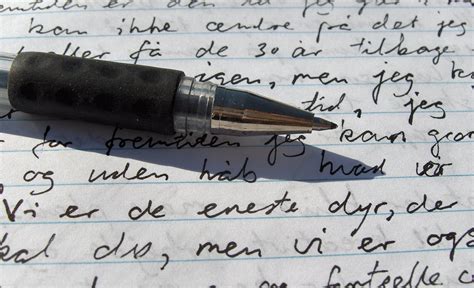 fremtiden er den tid jeg
kan ikke ændre på det jeg
eller få de 30 år tilbage
igen, men jeg k
tid, jeg
for fremtiden jeg kan
og uden håb hvad er
Vi er de eneste dyr, der
skal dø, men vi er ogs
og fortælle